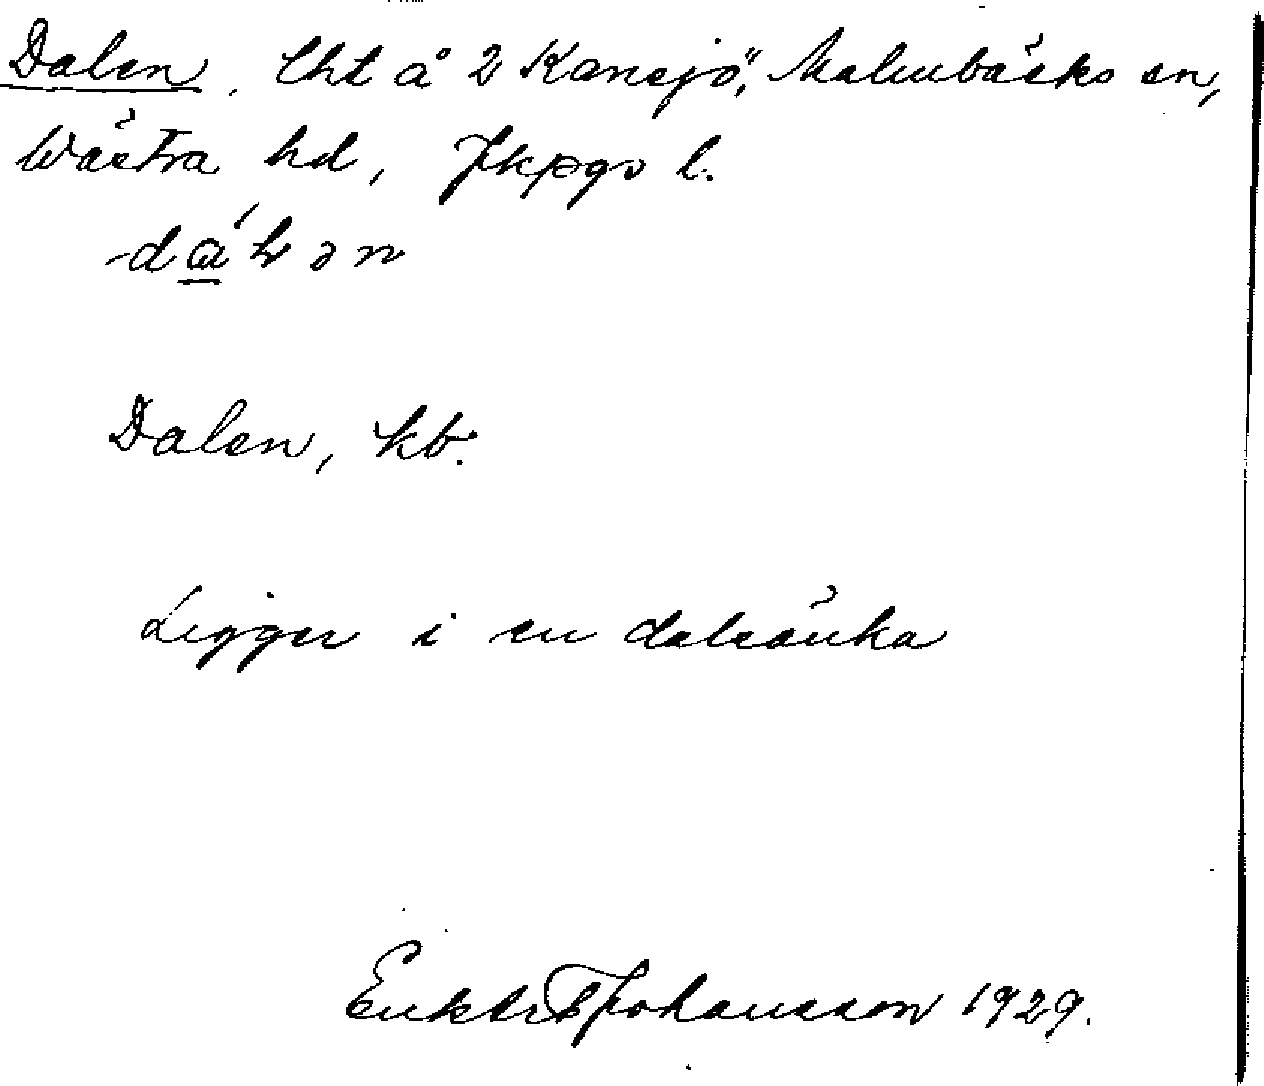 Dalen, lht å 2 Kansjö, Malmbäcks sn,
Västra hd, Jkpgs l.
dálən
Dalen, kb.
Ligger i en dalsänka
Johansson 1929.